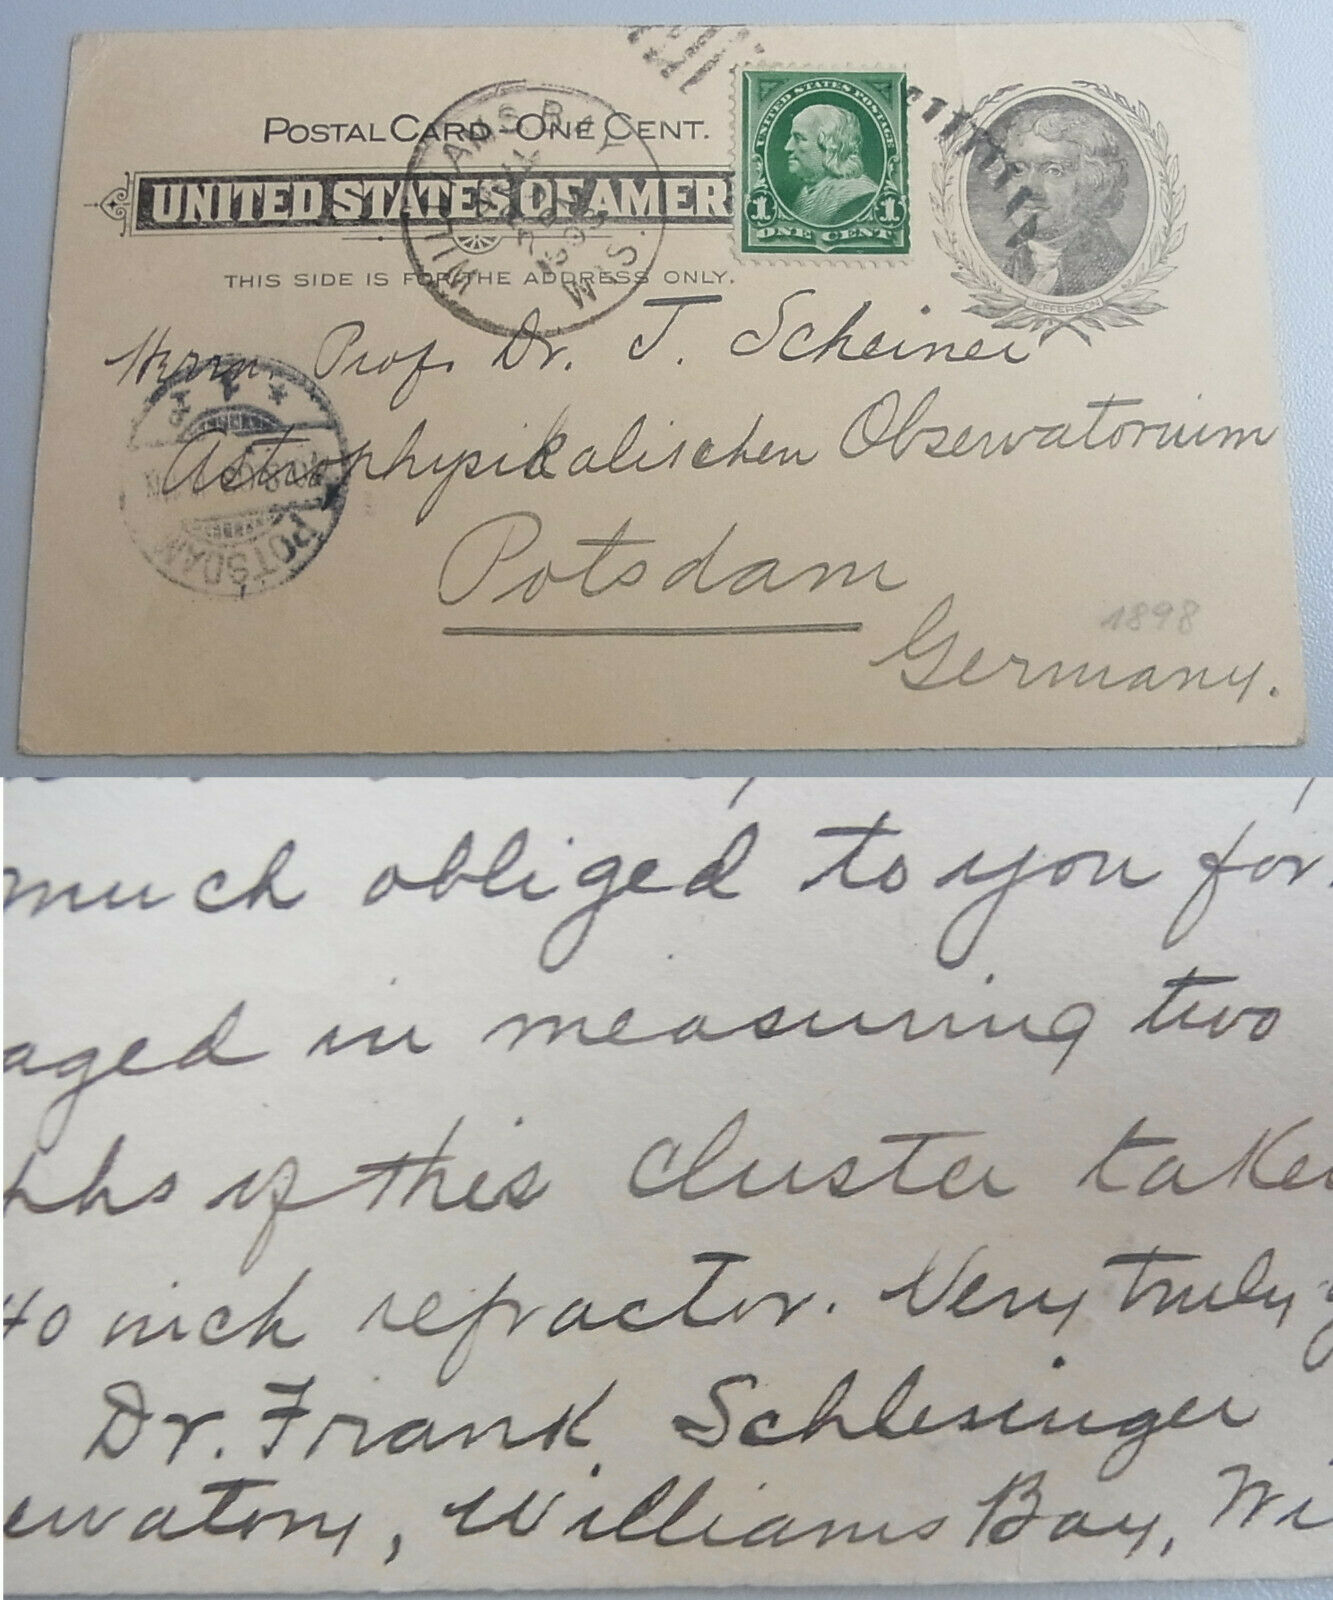 POSTAL CARD - ONE CENT.
UNITED STATES OF AMER
THIS SIDE IS FOR THE ADDRESS ONLY.
UNITED STATES POSTAGE
1 1
ONE CENT
JEFFERSON
WILLIAMS BAY WIS.
Herrn. Prof. Dr. J. Scheiner
Astrophysikalischen Observatorium
Potsdam
Germany.
1898
POTSDAM
much obliged to you for
aged in measuring two
phs of this cluster taken
40 inch refractor. Very truly y
Dr. Frank Schlesinger
ervatory, Williams Bay, Wi